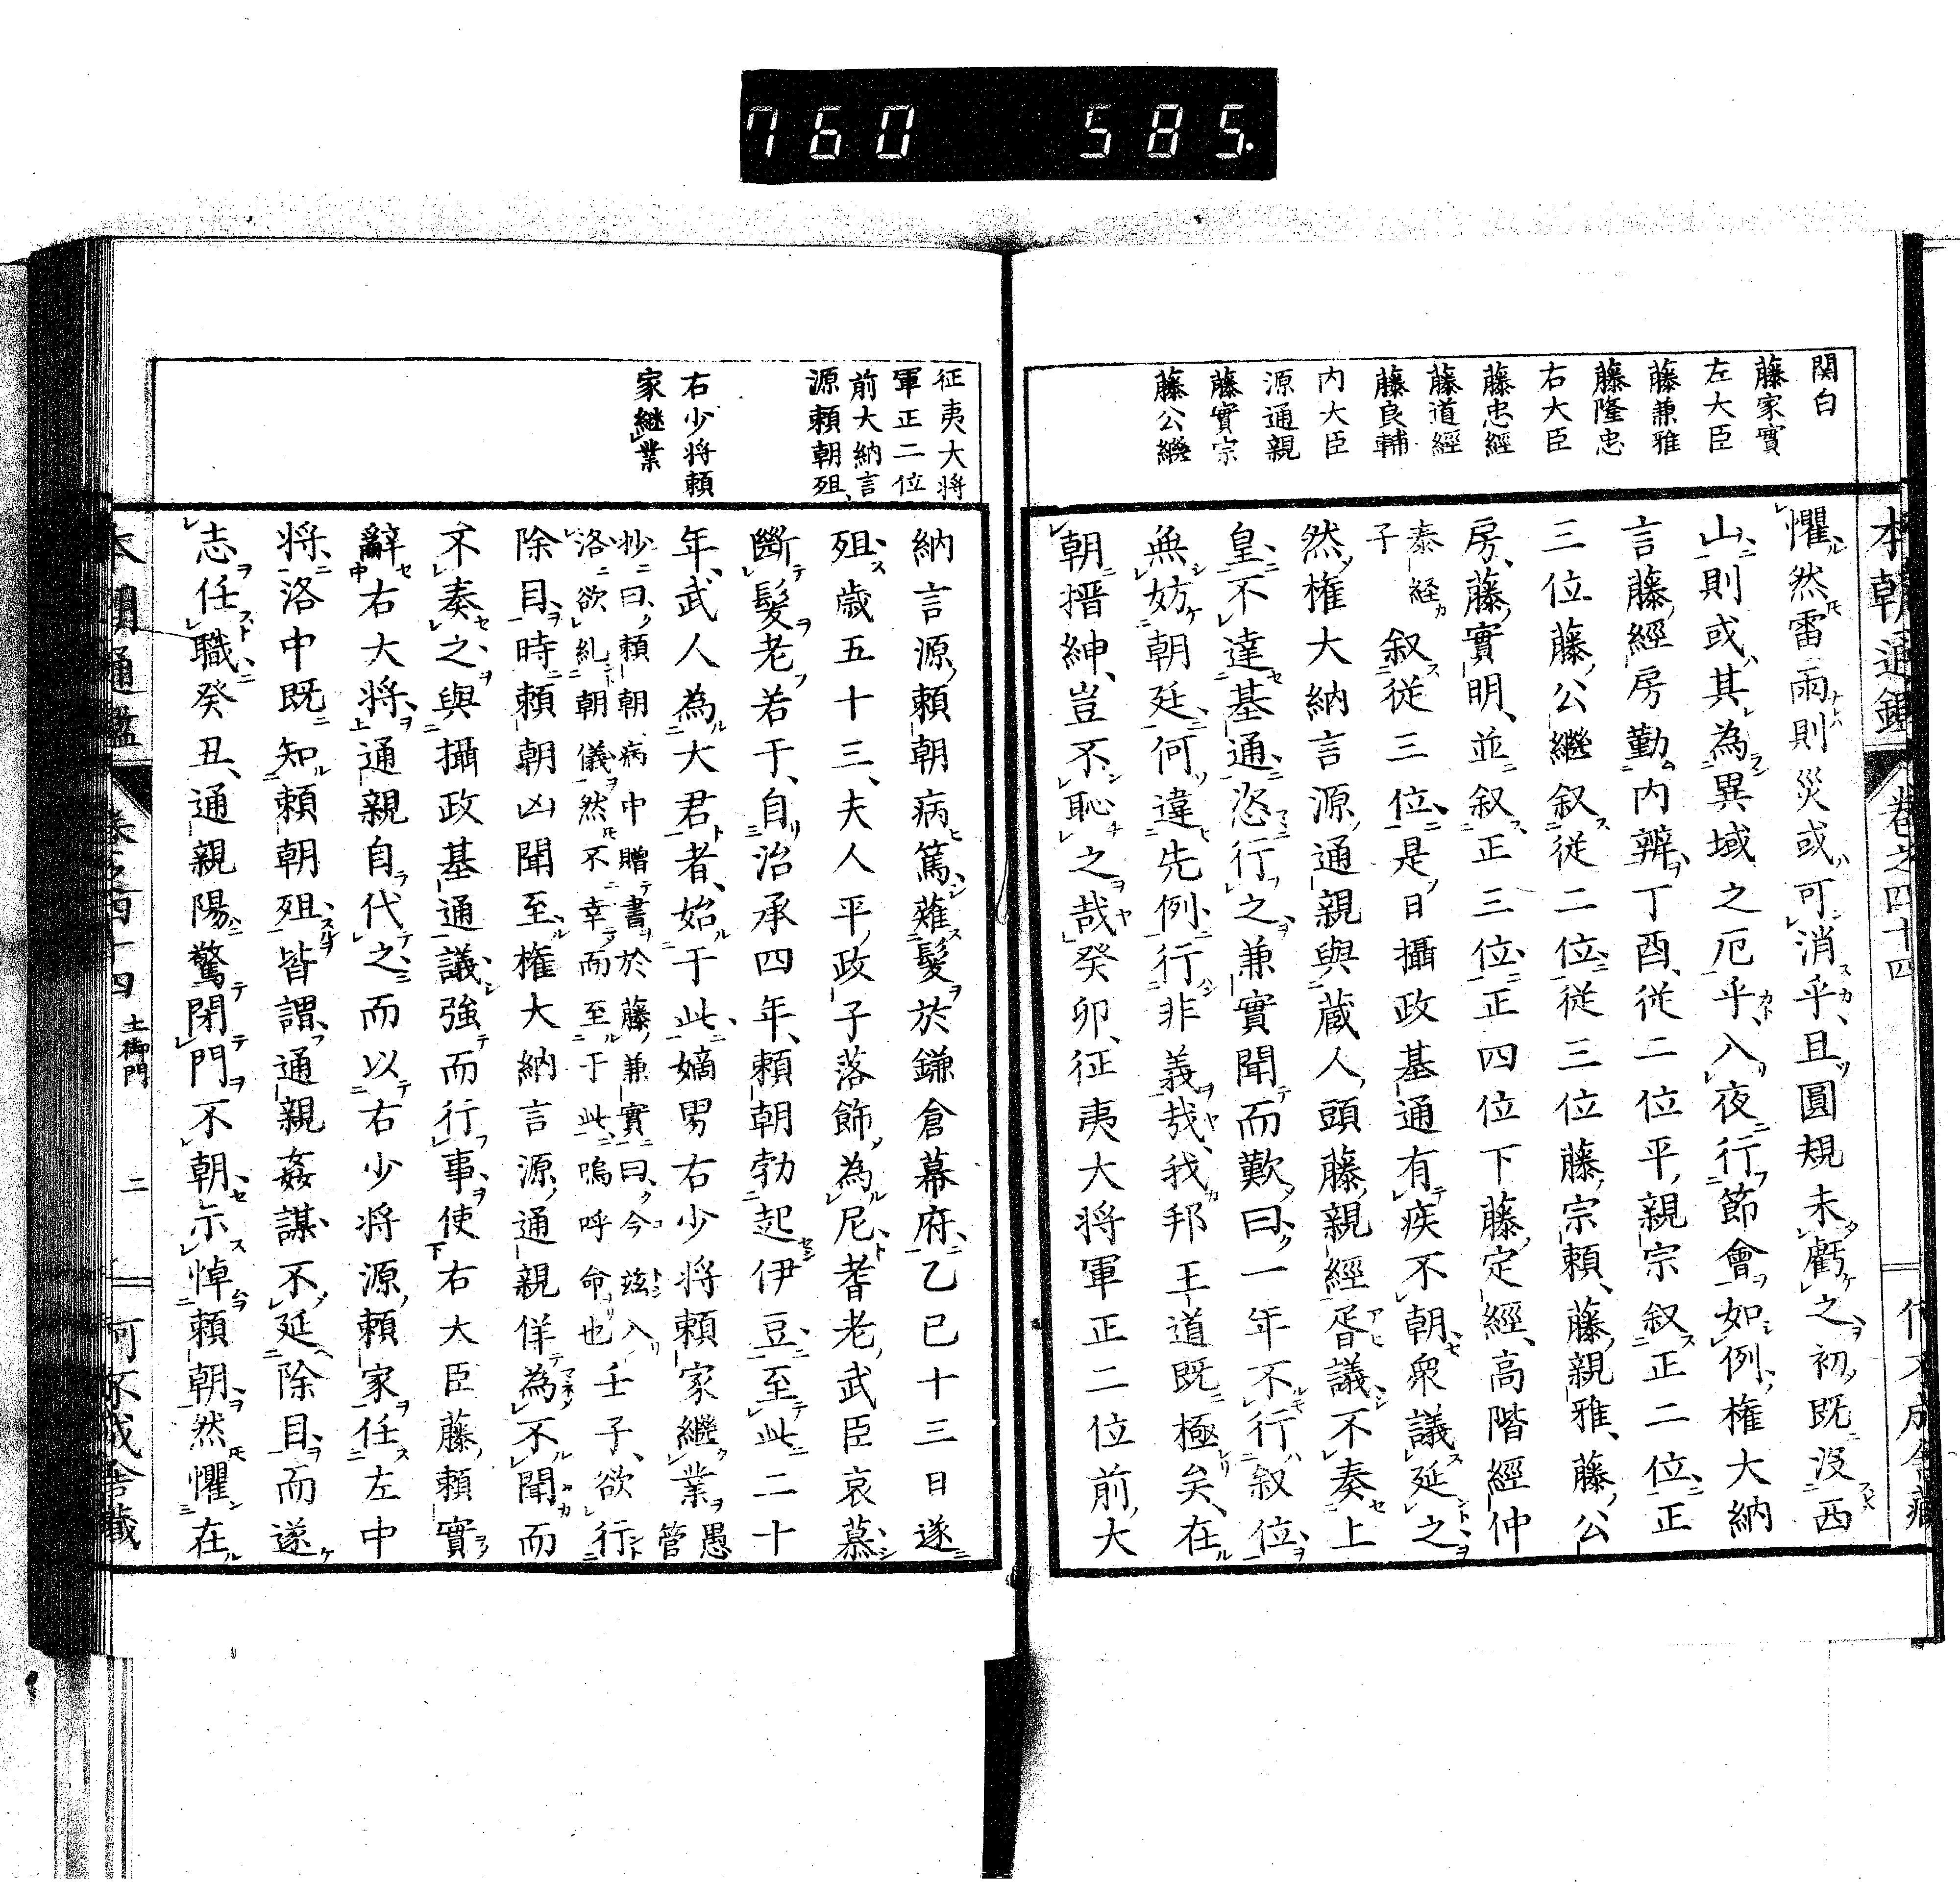 760 585.
本朝通鑑 卷之四十四
関白
藤家實
左大臣
藤兼雅
藤隆忠
右大臣
藤忠經
藤道經
藤良輔
内大臣
源通親
藤實宗
藤公繼
懼然雷雨則災或可消乎、且圓規未虧之初、既沒西
山、則或其為異域之厄乎、入夜行節會如例、権大納
言藤經房勤内辨、丁酉、従二位平親宗叙正二位、正
三位藤公繼叙従二位、従三位藤宗頼、藤親雅、藤公
房、藤實明、並叙正三位、正四位下藤定經、高階經仲
泰経
子
叙従三位、是日攝政基通有疾不朝、衆議延之
然権大納言源通親與蔵人頭藤親經胥議、不奏上
皇、不達基通、恣行之、兼實聞而歎曰、一年不行叙位、
無妨朝廷、何違先例、行非義哉、我邦王道既極矣、在
朝搢紳、豈不恥之哉、癸卯、征夷大将軍正二位前大
征夷大将
軍正二位
前大納言
源頼朝殂、
右少将頼
家継業
納言源頼朝病篤、薙髮於鎌倉幕府、乙巳十三日遂
殂、歳五十三、夫人平政子落飾為尼、耆老武臣哀慕
斷髮老若于、自治承四年、頼朝勃起伊豆、至此二十
年、武人為大君者、始于此、嫡男右少将頼家繼業、愚
管
抄曰、頼朝病中贈書於藤兼實曰、今茲入
洛欲糺朝儀、然不幸而至于此、嗚呼命也
壬子、欲行
除目、時頼朝凶聞至、権大納言源通親佯為不聞而
不奏之、與攝政基通議、強而行事、使右大臣藤頼實
辭右大将、通親自代之、而以右少将源頼家任左中
将、洛中既知頼朝殂、皆謂通親姦謀、不延除目、而遂
志任職、癸丑、通親陽驚閉門不朝、示悼頼朝、然懼在
本朝通鑑 卷之四十四 土御門 二